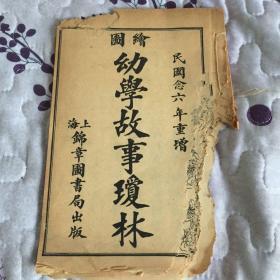 繪圖
民國念六年重增
幼學故事瓊林
上海
錦章圖書局出版